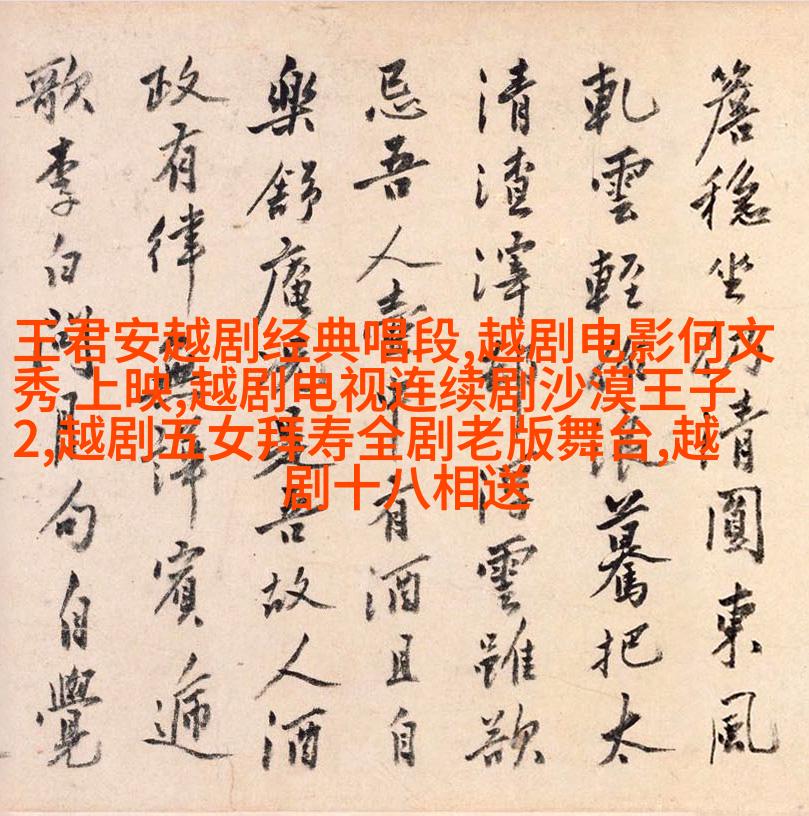 王君安越剧经典唱段,越剧电影何文
秀 上映,越剧电视连续剧沙漠王子
2,越剧五女拜寿全剧老版舞台,越
剧十八相送
簷穩坐清圓東風
軋雲輕浪驀把太
清渣滓得雲雖欲
忌吾人有酒且自
樂舒庵是吾故人酒
政有律賓遞
歌李白問月句自覺